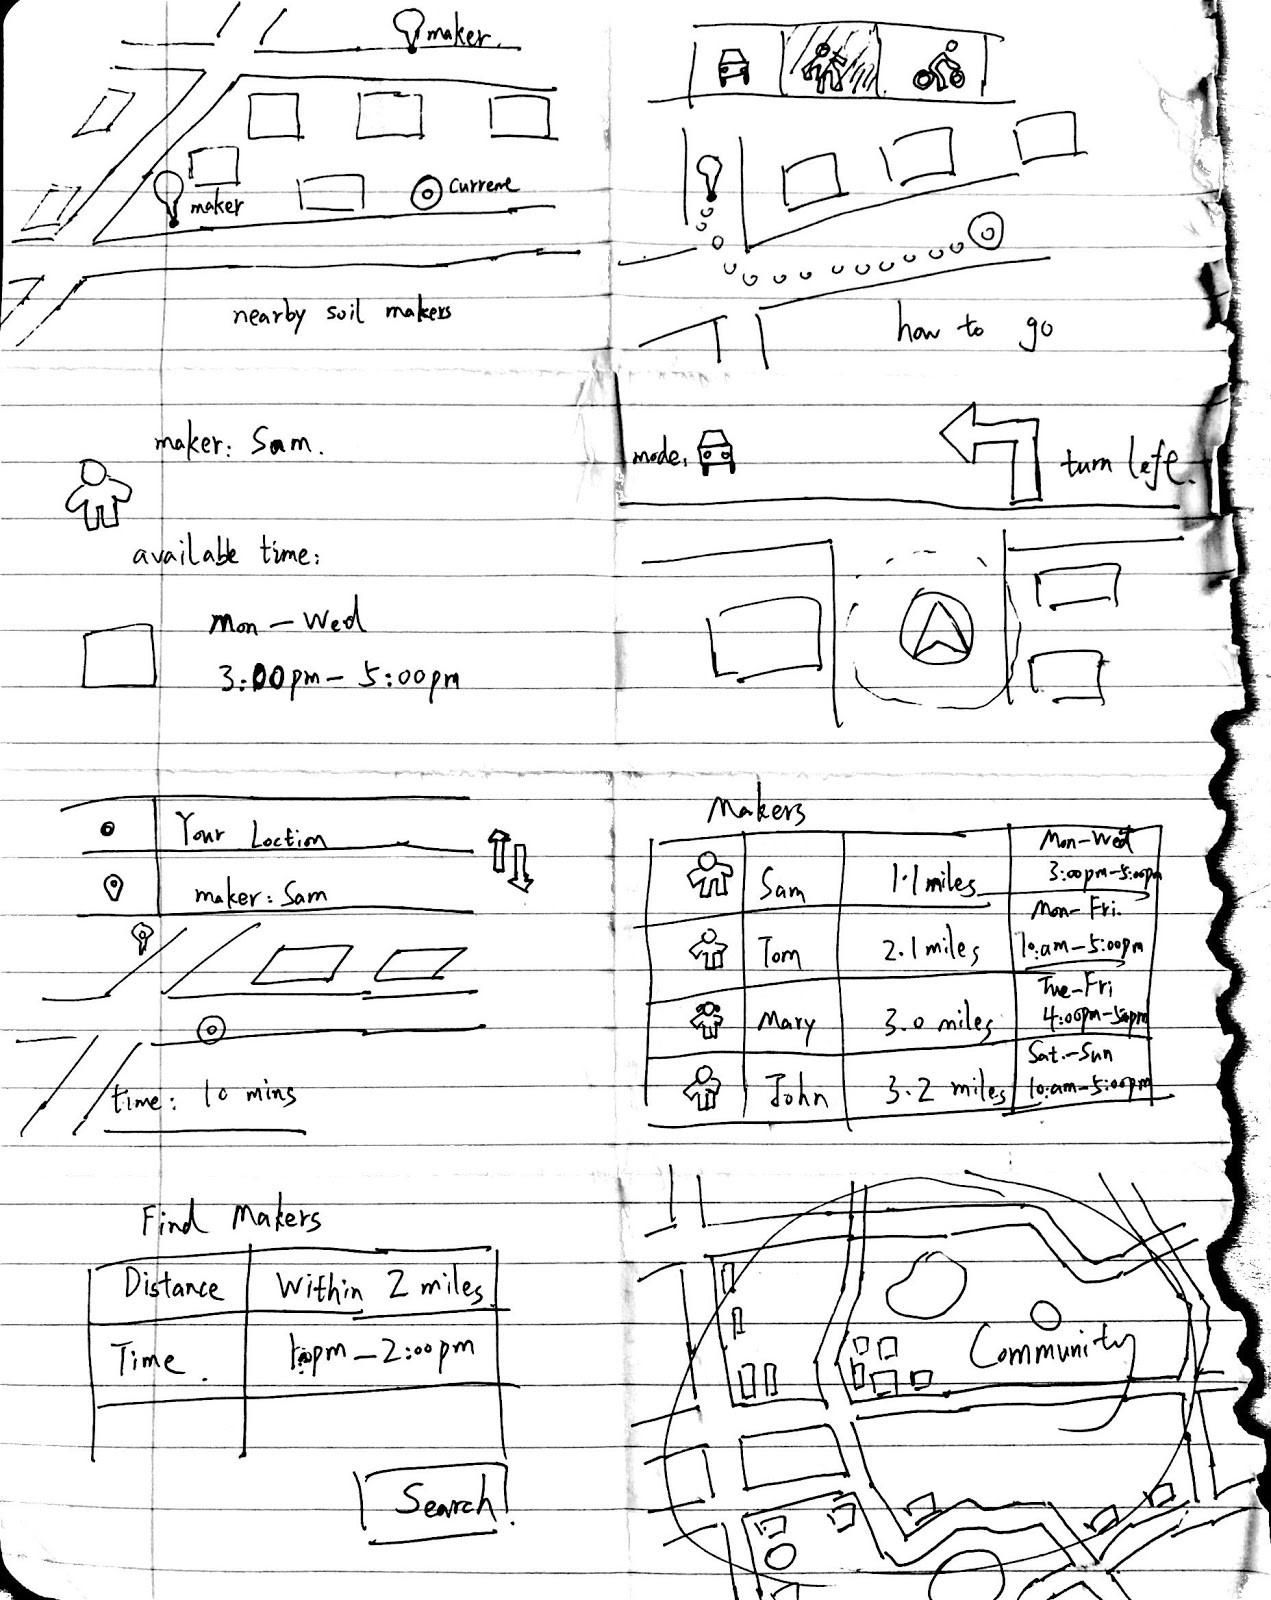 maker.
current
maker
nearby soil makers
how to go
maker: Sam.
available time:
Mon - Wed
3:00pm - 5:00pm
mode.
turn left.
Your Loction
maker: Sam
time: 10 mins
Makers
Sam 1.1 miles Mon-Wed 3:00pm-5:00pm
Tom 2.1 miles Mon-Fri. 10:am-5:00pm
Mary 3.0 miles Tue-Fri 4:00pm-5:00pm
John 3.2 miles Sat.-Sun 10:am-5:00pm
Find Makers
Distance Within 2 miles.
Time. 1:00pm - 2:00pm
Search
Community